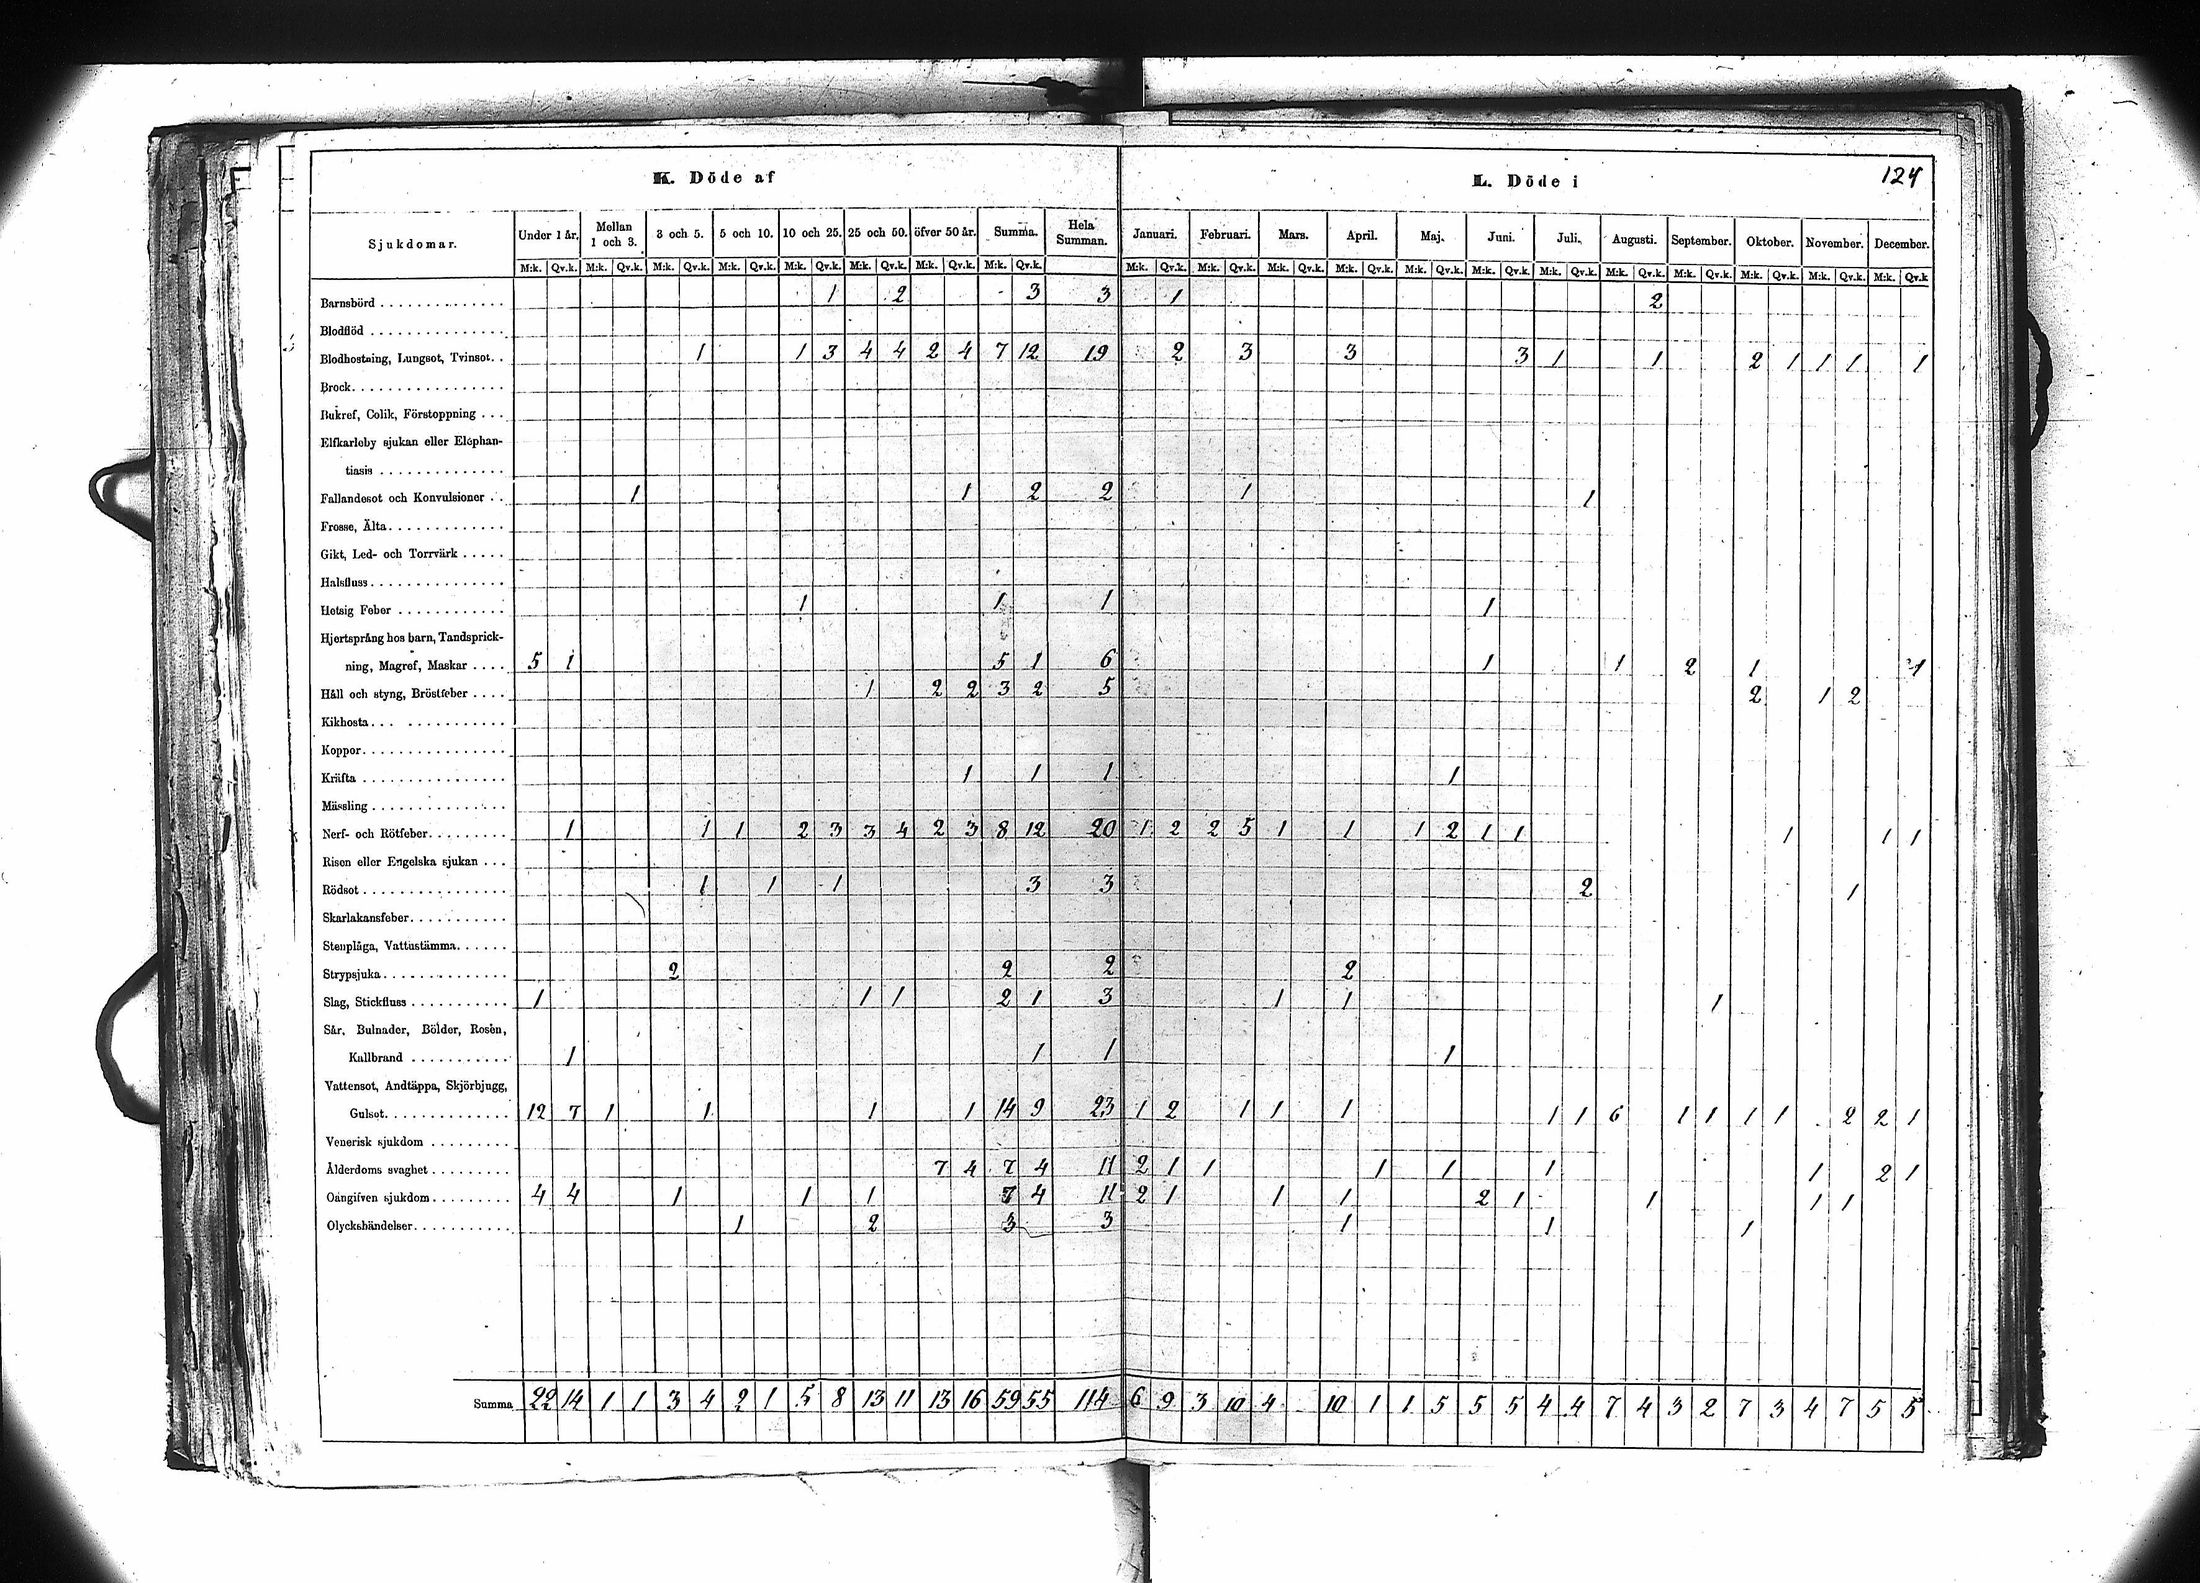 K. Döde af L. Döde i 124
Sjukdomar. Under 1 år. Mellan 1 och 3. 3 och 5. 5 och 10. 10 och 25. 25 och 50. öfver 50 år. Summa. Hela Summan. Januari. Februari. Mars. April. Maj. Juni. Juli. Augusti. September. Oktober. November. December.
M:k. Qv.k. M:k. Qv.k. M:k. Qv.k. M:k. Qv.k. M:k. Qv.k. M:k. Qv.k. M:k. Qv.k. M:k. Qv.k. M:k. Qv.k. M:k. Qv.k. M:k. Qv.k. M:k. Qv.k. M:k. Qv.k. M:k. Qv.k. M:k. Qv.k. M:k. Qv.k. M:k. Qv.k. M:k. Qv.k. M:k. Qv.k. M:k. Qv.k
Barnsbörd 1 2 3 3 1 2
Blodflöd
Blodhostning, Lungsot, Tvinsot. 1 1 3 4 4 2 4 7 12 19 2 3 3 3 1 1 2 1 1 1 1
Brock
Bukref, Colik, Förstoppning
Elfkarleby sjukan eller Elephan-
tiasis
Fallandesot och Konvulsioner 1 1 2 2 1 1
Frosse, Älta
Gikt, Led- och Torrvärk
Halsfluss
Hetsig Feber 1 1 1 1
Hjertsprång hos barn, Tandsprick-
ning, Magref, Maskar 5 1 5 1 6 1 1 2 1 1
Håll och styng, Bröstfeber 1 2 2 3 2 5 2 1 2
Kikhosta
Koppor
Kräfta 1 1 1 1
Mässling
Nerf- och Rötfeber 1 1 1 2 3 3 4 2 3 8 12 20 1 2 2 5 1 1 1 2 1 1 1 1 1
Risen eller Engelska sjukan
Rödsot 1 1 1 3 3 2 1
Skarlakansfeber
Stenplåga, Vattustämma
Strypsjuka 2 2 2 2
Slag, Stickfluss 1 1 1 2 1 3 1 1 1
Sår, Bulnader, Bölder, Rosen,
Kallbrand 1 1 1 1
Vattensot, Andtäppa, Skjörbjugg,
Gulsot 12 7 1 1 1 1 14 9 23 1 2 1 1 1 1 1 6 1 1 1 1 2 2 1
Venerisk sjukdom
Ålderdoms svaghet 7 4 7 4 11 2 1 1 1 1 1 1 2 1
Oangifven sjukdom 4 4 1 1 1 7 4 11 2 1 1 1 2 1 1 1 1
Olyckshändelser 1 2 3 3 1 1 1
Summa 22 14 1 1 3 4 2 1 5 8 13 11 13 16 59 55 114 6 9 3 10 4 10 1 1 5 5 5 4 4 7 4 3 2 7 3 4 7 5 5